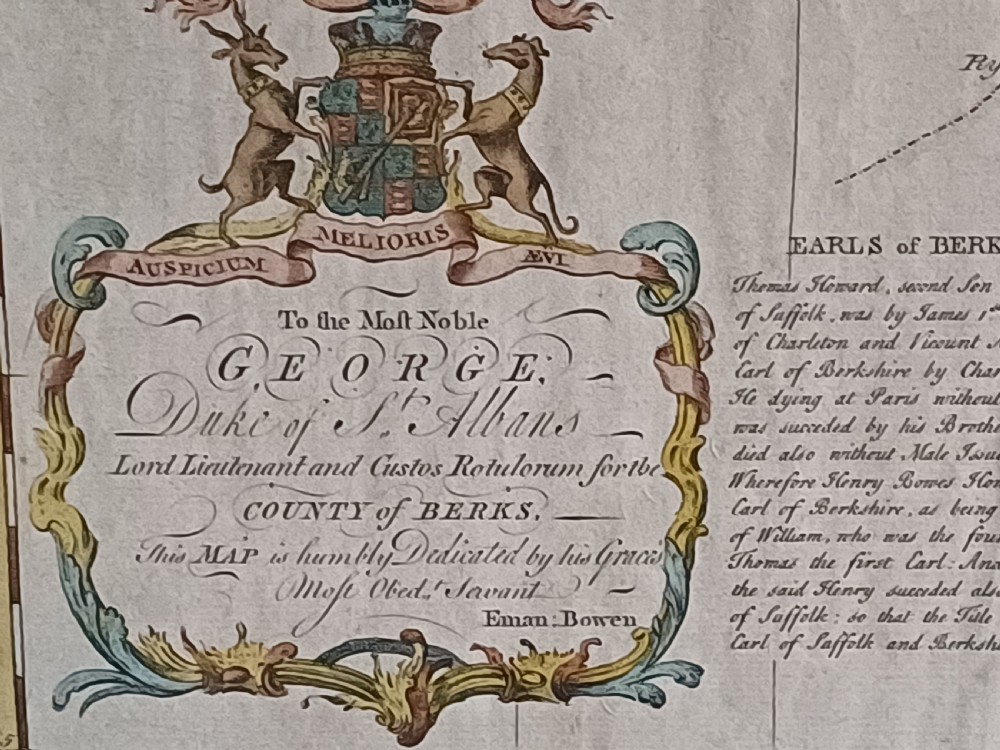 AUSPICIUM MELIORIS ÆVI
To the Most Noble
GEORGE;
Duke of St. Albans
Lord Lieutenant and Custos Rotulorum for the
COUNTY of BERKS,
This MAP is humbly Dedicated by his Graces
Most Obedt. Servant
Eman: Bowen
EARLS of BERK
Thomas Howard, second Son
of Suffolk, was by James 1st
of Charleton and Vicount
Earl of Berkshire by Char
He dying at Paris without
was succeded by his Brothe
died also without Male Issue
Wherefore Henry Bowes How
Earl of Berkshire, as being
of William, who was the four
Thomas the first Earl: And
the said Henry succeded also
of Suffolk: so that the Title
Earl of Suffolk and Berkshi